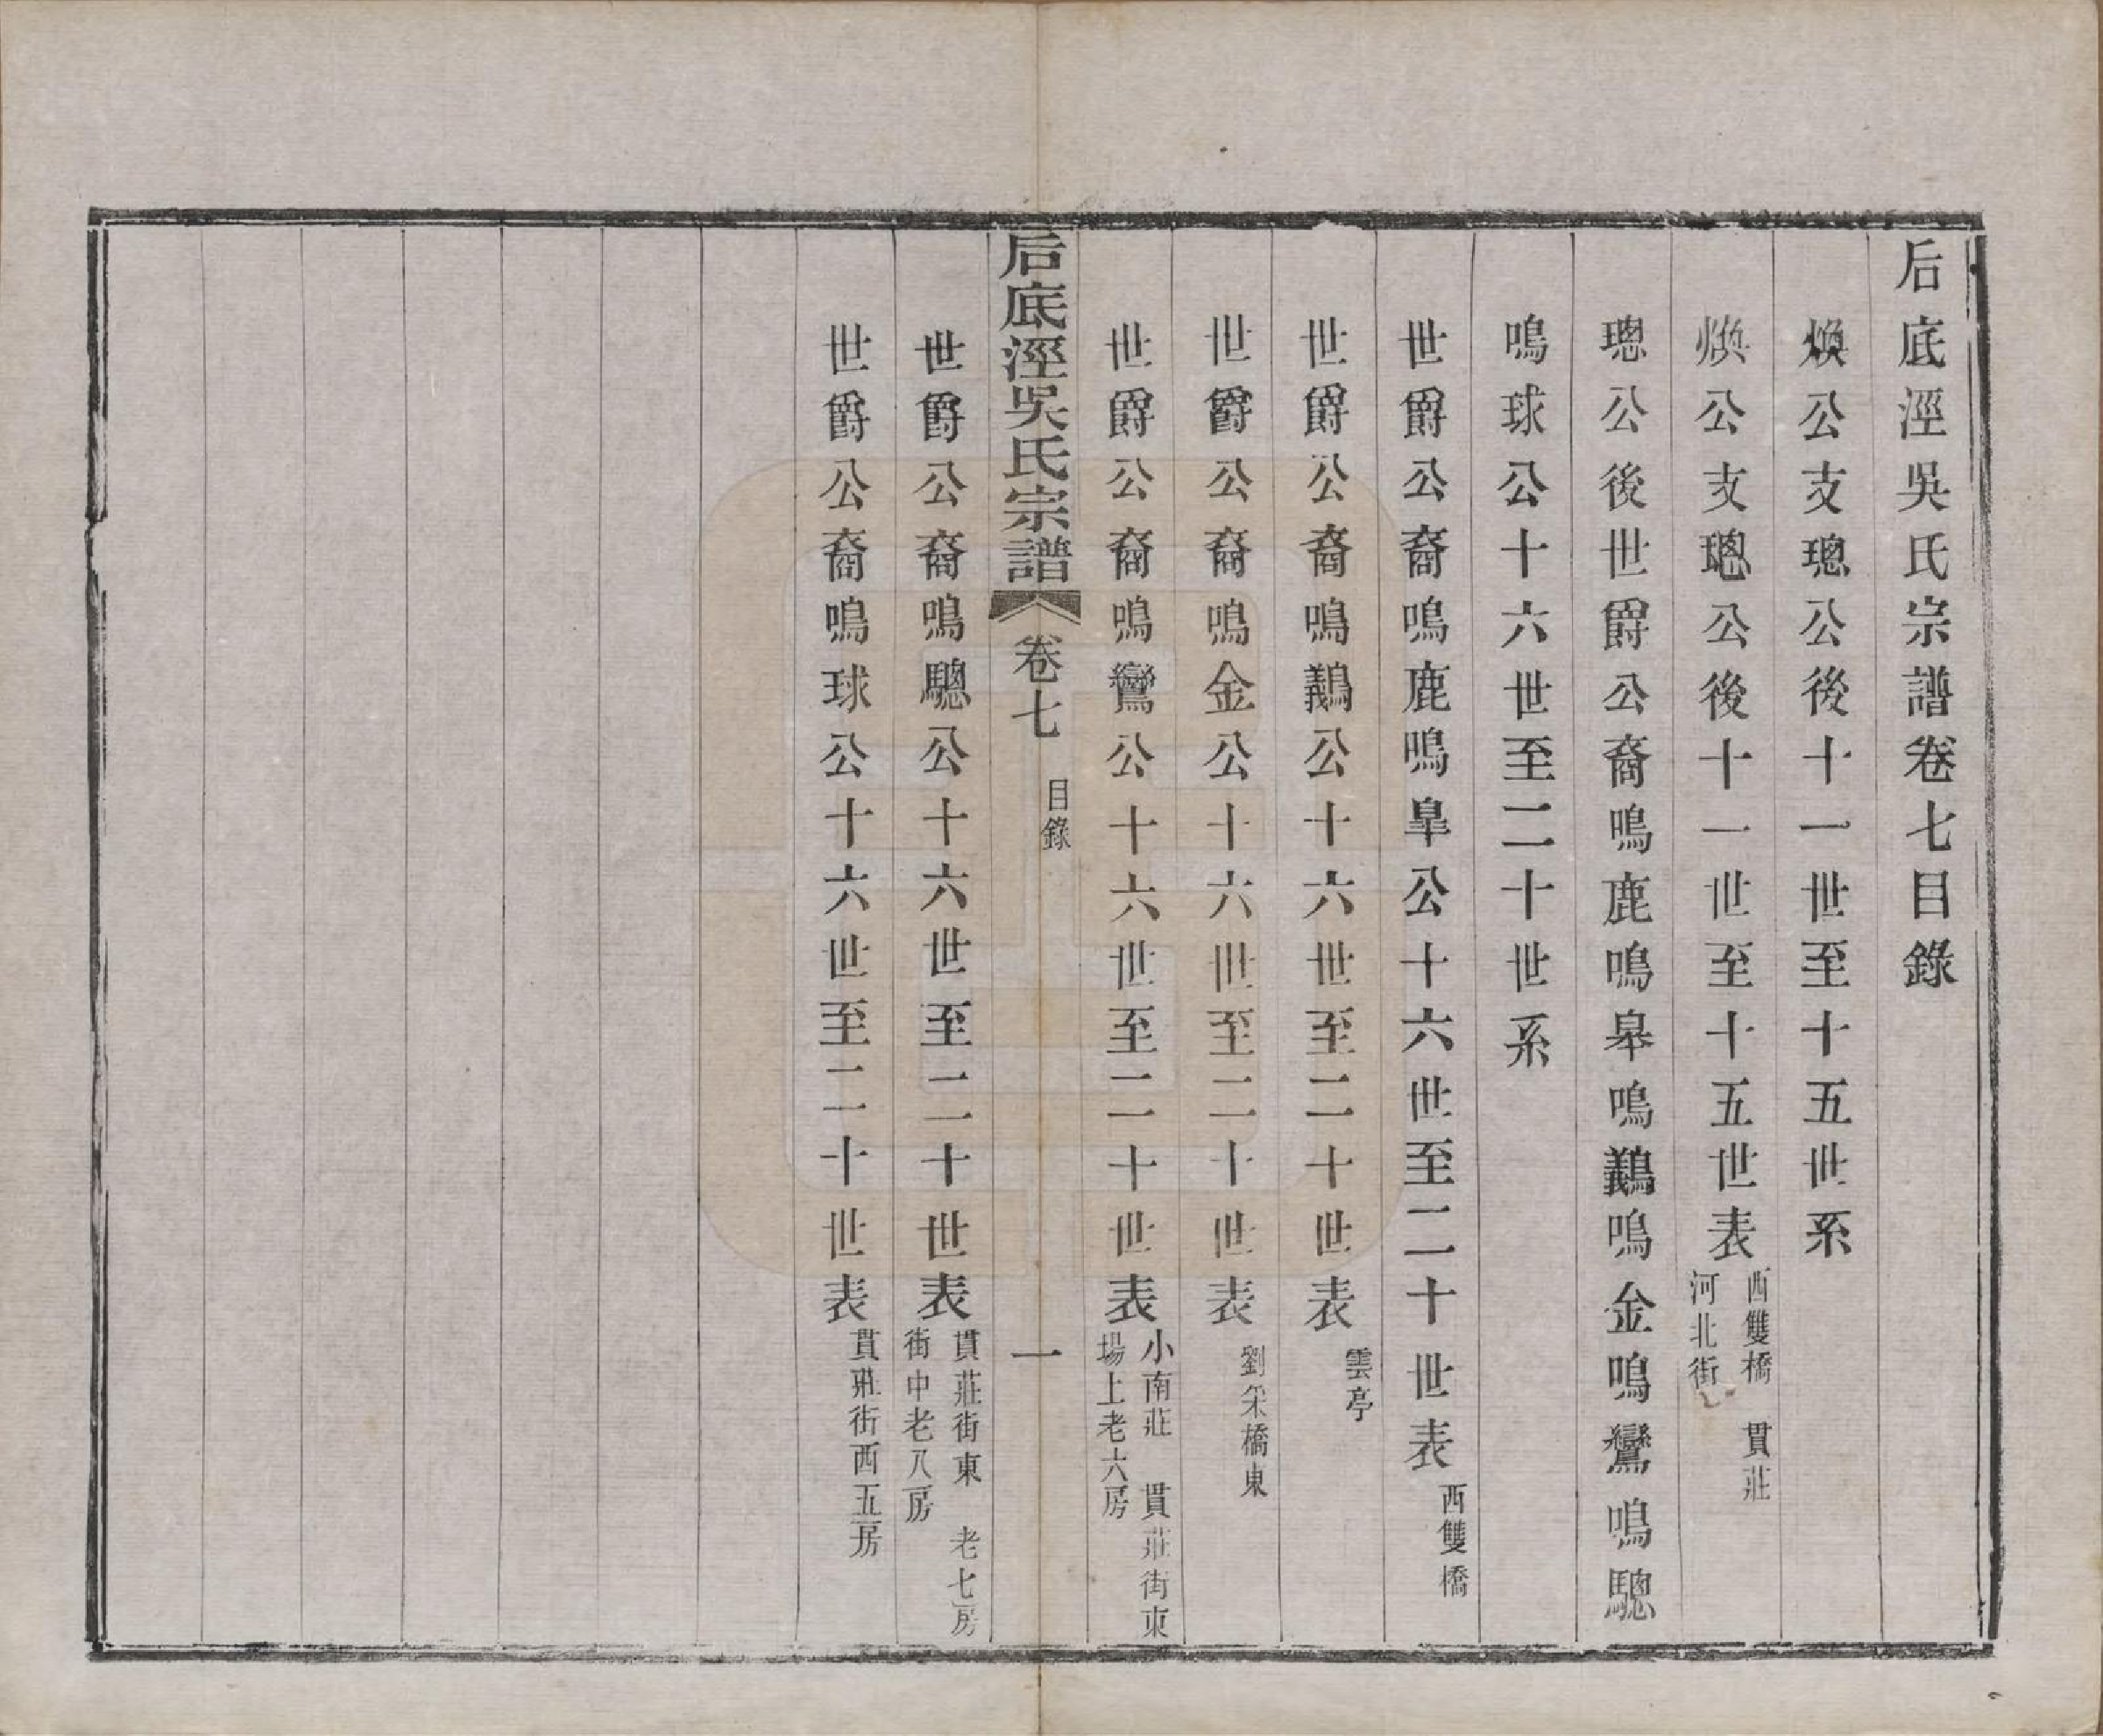 后底涇吳氏宗譜卷七目錄
煥公支璁公後十一世至十五世系
煥公支璁公後十一世至十五世表 西雙橋 貫莊
河北街
璁公後世爵公裔鳴鹿鳴皋鳴鸃鳴金鳴鸞鳴驄
鳴球公十六世至二十世系
世爵公裔鳴鹿鳴皐公十六世至二十世表 西雙橋
世爵公裔鳴鸃公十六世至二十世表 雲亭
世爵公裔鳴金公十六世至二十世表 劉伞橋東
世爵公裔鳴鸞公十六世至二十世表 小南莊 貫莊街東
場上老六房
后底涇吳氏宗譜 卷七 目錄 一
世爵公裔鳴驄公十六世至二十世表 貫莊街東 老七房
街中老八房
世爵公裔鳴球公十六世至二十世表 貫莊街西五房